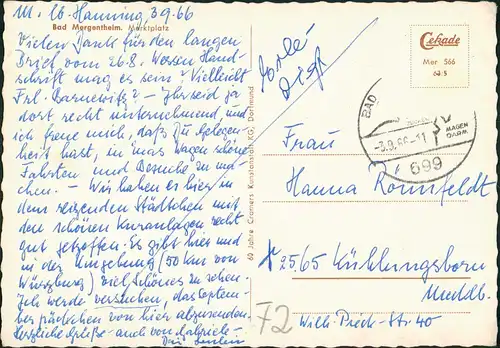 M. lb. Hanning, 3.9.66
Bad Mergentheim. Marktplatz
Vielen Dank für den langen
Brief vom 26.8. Wessen Hand-
schrift mag es sein? Vielleicht
Frl. Barnewitz? – Ihr seid ja
dort recht unternehmend, und
ich freue mich, daß Du Gelegen-
heit hast, in 's Wagen schöne
Fahrten und Besuche zu ma-
chen. – Wir haben es hier in
dem reizenden Städtchen mit
den schönen Kuranlagen recht
gut getroffen. Es gibt hier und
in der Umgebung (50 km von
Würzburg) viel Schönes zu sehen.
Ich werde versuchen, das Septem-
berpäckchen von hier abzusenden.
Herzliche Grüße – auch von Gabriele –
60 Jahre Cramers Kunstanstalt KG, Dortmund
Cekade
Mer 566
BAD
-3.9.66-11
MAGEN
DARM
699
Frau
Hanna Römpfeldt
x 2565 Kühlungsborn
Meckb.
Willi-Pieck-Str. 40
72